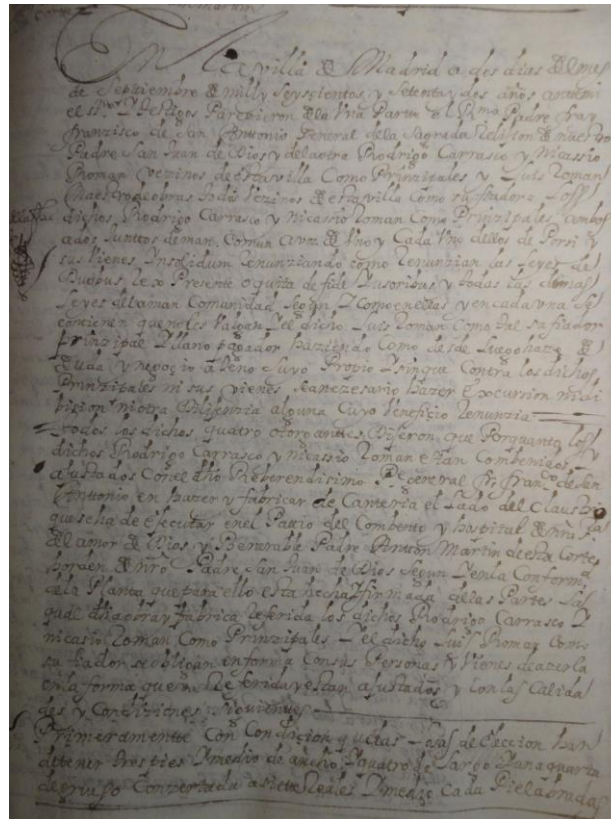 En la villa de Madrid a dos dias del mes
de Septiembre de mill y seyscientos y setenta y dos años ante mi
el ss.no y testigos Parezieron de la Una Parte el R.mo Padre fray
francisco de San Antonio General de la Sagrada Relision de nuestro
Padre San Juan de Dios y de la otra Rodrigo Carrasco y Nicassio
Roman Vezinos de esta villa Como Prinzipales y Luis Roman
Maestro de obras todos Vezinos de esta villa como su fiador Loss
dichos Rodrigo Carrasco y nicassio Roman Como Prinzipales ambos
ados Junttos de man Comun a voz de Uno y Cada Uno dellos de Por si y
sus vienes Insolidum Renunziando como Renunzian las leyes de
Duobus Rex Presente o quita de fide Iusoribus y todas las demas
leyes de la man Comunidad Segun Y Como en ellas y en cada una Se
contienen que no les Valgan Y el dicho Luis Roman Como tal su fiador
Prinzipal Y llano pagador haziendo Como desde luego haze de
deuda y negozio ageno Suyo Propio Y sin que Contra los dichos
Prinzipales ni sus vienes sea nezesario hazer Excursion ni di
bision ni otra Dilijenzia alguna Cuyo Veneficio Renunzia
todos los dichos quatro otorgantes Dijeron que Por quanto Loss
dichos Rodrigo Carrasco y nicassio Roman estan Combenidos y
ajustados Con el dho Reberendisimo P.e General fr. fran.co de San
Antonio en hazer y fabricar de Canteria el lado del Claustro
que se ha de Executar en el Patio del Combento y hospital de nra S.ra
del amor de Dios y Benerable Padre Anton Martin de esta Corte
horden de nro Padre San Juan de Dios Segun Y en la Conform.d
de la Planta que para ello esta hecha Y firmada de las Partes La
qual dha obra y fabrica referida los dichos Rodrigo Carrasco Y
nicasio Roman Como Prinzipales Y el dicho Luis Roman Como
su fiador se obligan en forma Con sus Personas Y vienes de azerla
en la forma que ba Referida y estan ajustados y Con las Calida
des y Condiziones siguientes
Primeramente Con Condicion que las Losas de Eleccion han
de tener tres pies Y medio de ancho Y quatro de largo Y una quarta
de grueso Conzertada a siete Reales Y medio Cada Pie labradas